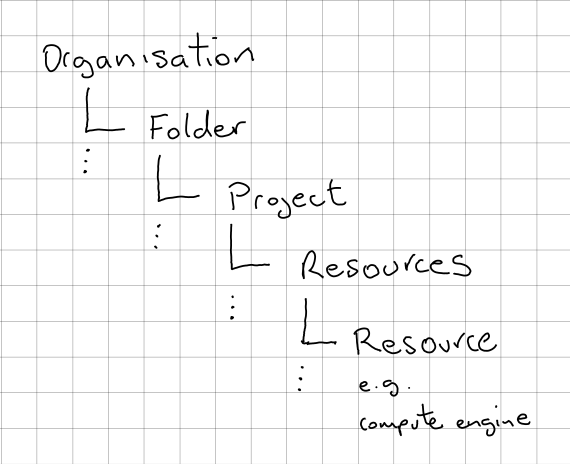 Organisation
Folder
Project
Resources
Resource
e.g.
compute engine